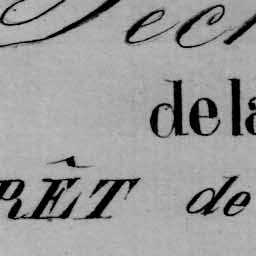 Tech
de la
RÊT de